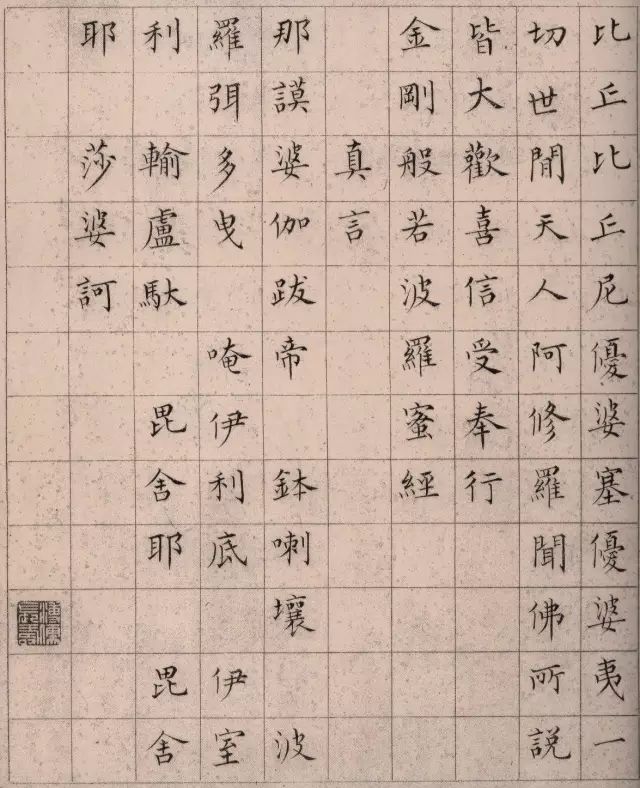 比丘比丘尼優婆塞優婆夷一
切世間天人阿修羅聞佛所説
皆大歡喜信受奉行
金剛般若波羅蜜經
真言
那謨婆伽跋帝 鉢喇壤 波
羅弭多曳 唵伊利底 伊室
利 輸盧馱 毘舍耶 毘舍
耶 莎婆訶